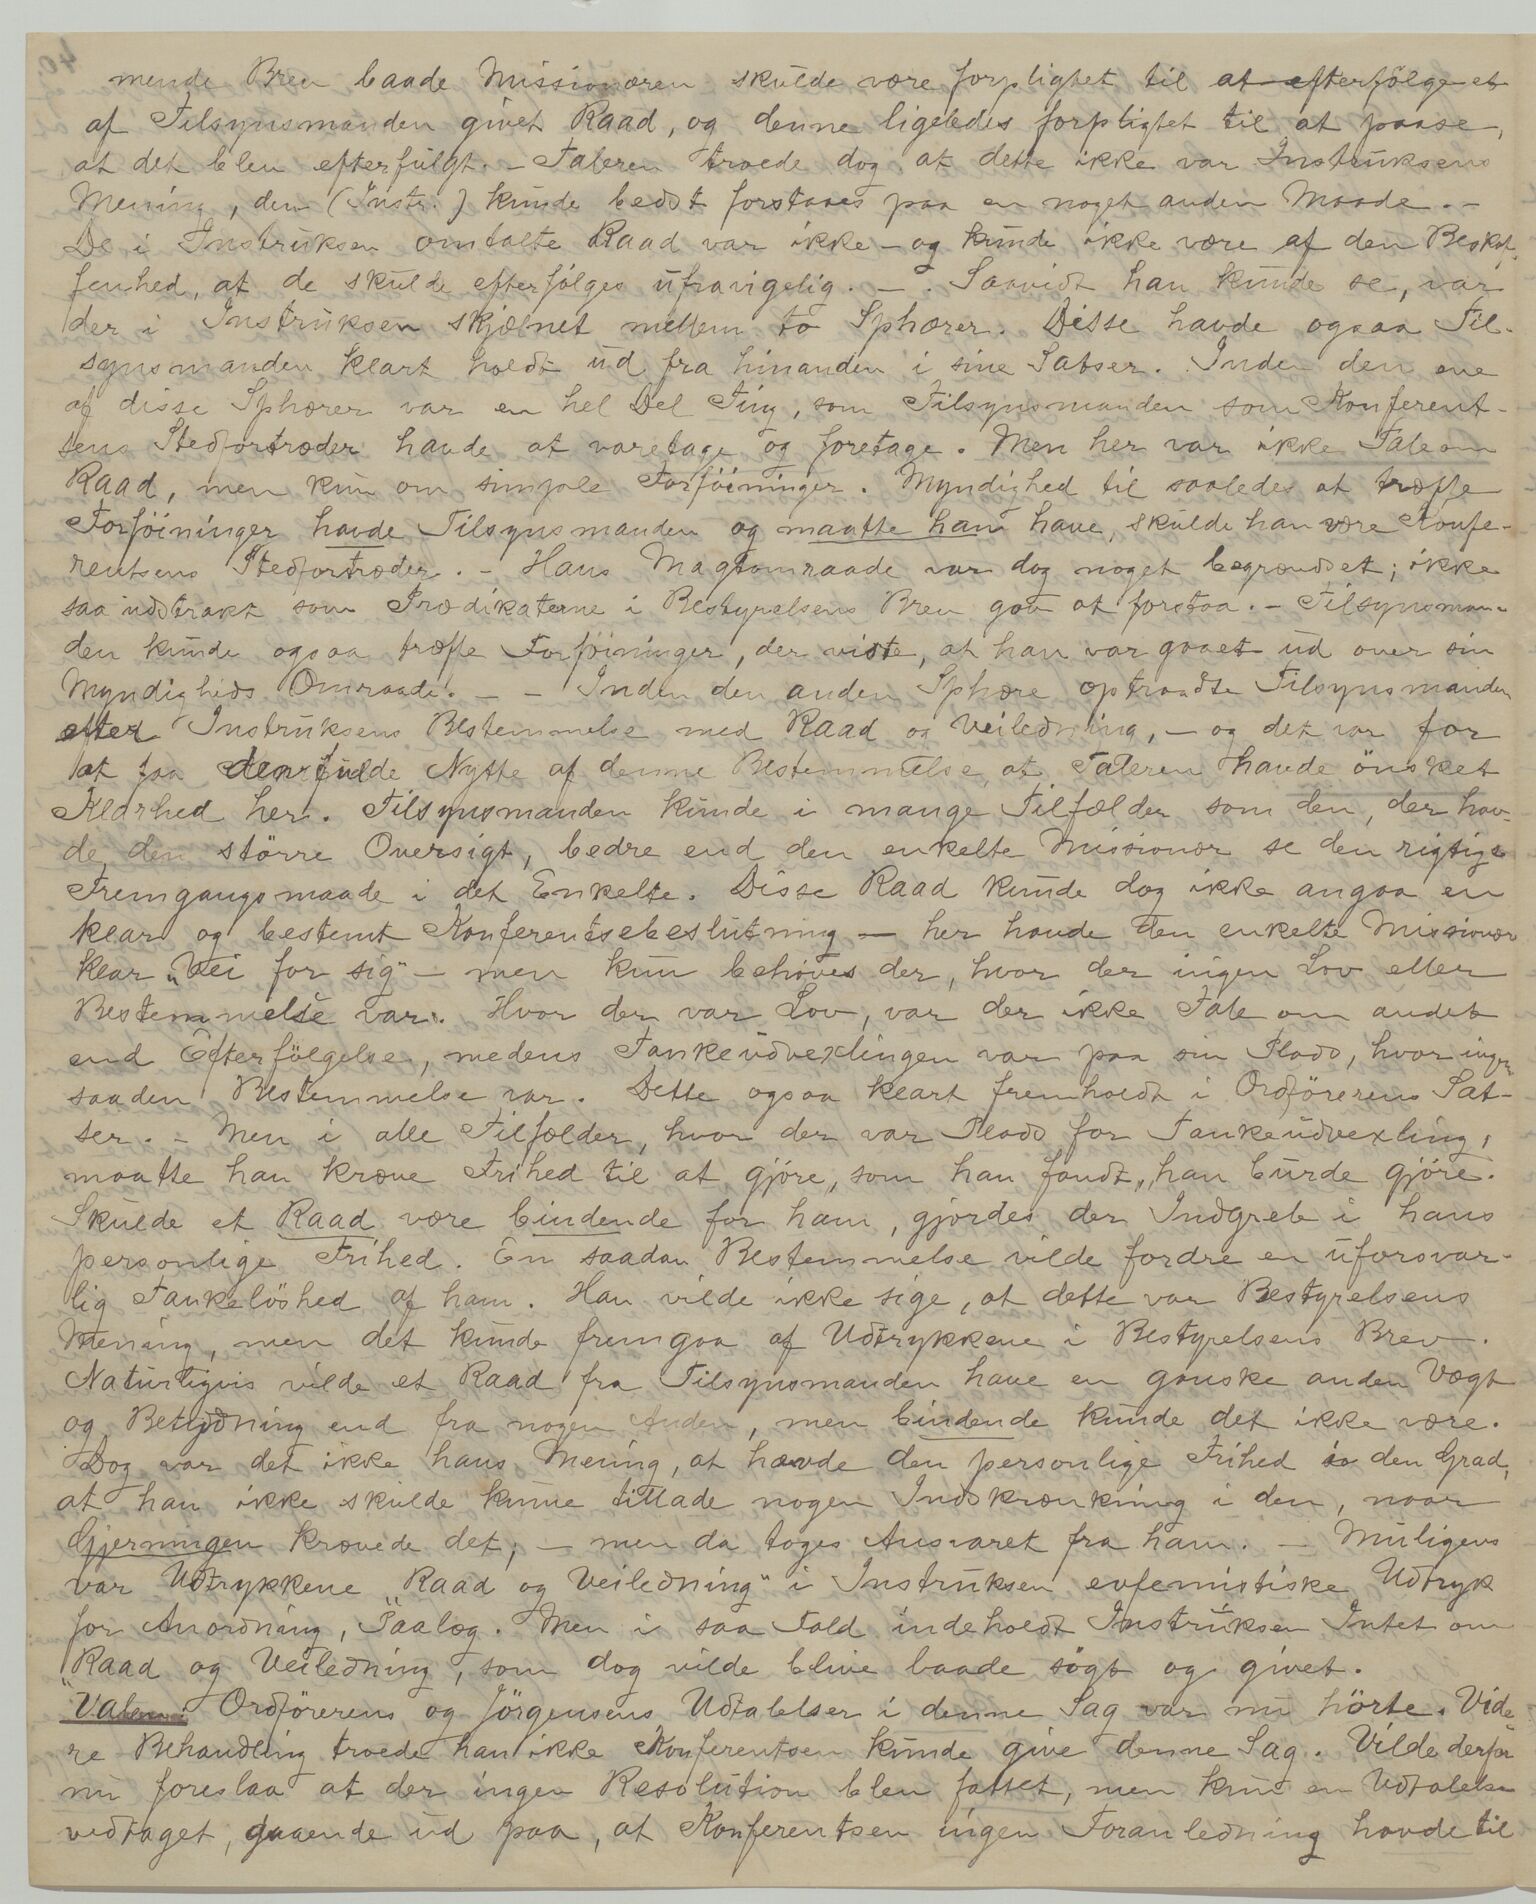 mende Brev baade Missionæren skulde være forpligtet til at efterfölge et
af Tilsynsmanden givet Raad, og denne ligeledes forpligtet til at paase,
at det blev efterfulgt. – Taleren troede dog at dette ikke var Instruksens
Mening, den (Instr.) kunde bedst forstaaes paa en noget anden Maade. –
De i Instruksen omtalte Raad var ikke – og kunde ikke være af den Beskaf-
fenhed, at de skulde efterfölges ufravigelig. – . Saavidt han kunde se, var
der i Instruksen skjælnet mellem to Sphærer. Disse havde ogsaa Til-
synsmanden klart holdt ud fra hinanden i sine Satser. Inden den ene
af disse Sphærer var en hel Del Ting, som Tilsynsmanden som Konferent-
sens Stedfortræder havde at varetage og foretage. Men her var ikke Tale om
Raad, men kun om simple Forföininger. Myndighed til saaledes at træffe
Forföininger havde Tilsynsmanden og maatte han have, skulde han være Konfe-
rentsens Stedfortræder. – Hans Magtomraade var dog noget begrændset; ikke
saa udstrakt som Prædikaterne i Bestyrelsens Brev gav at forstaa. – Tilsynsman-
den kunde ogsaa træffe Forföininger, der viste, at han var gaaet ud over sin
Myndigheds Omraade. – – Inden den anden Sphære optraadte Tilsynsmanden
efter Instruksens Bestemmelse med Raad og Veiledning, – og det var for
at faa den fulde Nytte af denne Bestemmelse at Taleren havde önsket
Klarhed her. Tilsynsmanden kunde i mange Tilfælder som den, der hav-
de den större Oversigt, bedre end den enkelte Missionær se den rigtige
Fremgangsmaade i det Enkelte. Disse Raad kunde dog ikke angaa en
klar og bestemt Konferentsebeslutning – her havde den enkelte Missionær
klar "Vei for sig" – men kun behöves der, hvor der ingen Lov eller
Bestemmelse var. Hvor der var Lov, var der ikke Tale om andet
end Efterfölgelse, medens Tankeudvexlingen var paa sin Plads, hvor ingen
saaden Bestemmelse var. Dette ogsaa klart fremholdt i Ordförerens Sat-
ser. – Men i alle Tilfælder, hvor der var Plads for Tankeudvexling,
maatte han kræve Frihed til at gjöre, som han fandt, han burde gjöre.
Skulde et Raad være bindende for ham, gjordes der Indgreb i hans
personlige Frihed. En saadan Bestemmelse vilde fordre en uforsvar-
lig Tankelöshed af ham. Han vilde ikke sige, at dette var Bestyrelsens
Mening, men det kunde fremgaa af Udtrykkene i Bestyrelsens Brev.
Naturligvis vilde et Raad fra Tilsynsmanden have en ganske anden Vægt
og Betydning end fra nogen Anden, men bindende kunde det ikke være.
Dog var det ikke hans Mening, at hævde den personlige Frihed i den Grad,
at han ikke skulde kunne tillade nogen Indskrænkning i den, naar
Gjerningen krævede det; – men da toges Ansvaret fra ham. – Muligens
var Udtrykkene "Raad og Veiledning" i Instruksen eufemistiske Udtryk
for Anordning, Paalæg. Men i saa Fald indeholdt Instruksen Intet om
Raad og Veiledning, som dog vilde blive baade sögt og givet.
Valen: Ordförerens og Jörgensens Udtalelser i denne Sag var nu hörte. Vide-
re Behandling troede han ikke Konferentsen kunde give denne Sag. Vilde derfor
nu foreslaa at der ingen Resolution blev fattet, men kun en Udtalelse
vedtaget, gaaende ud paa, at Konferentsen ingen Foranledning havde til